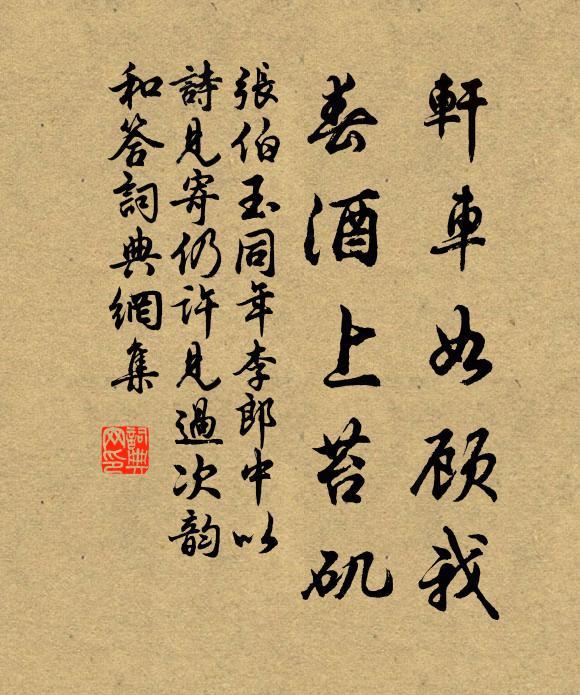 軒車如顾我
春酒上苔矶
張伯玉同年李郎中以
詩見寄仍許見過次韵
和答詞典網集
詞典
网印